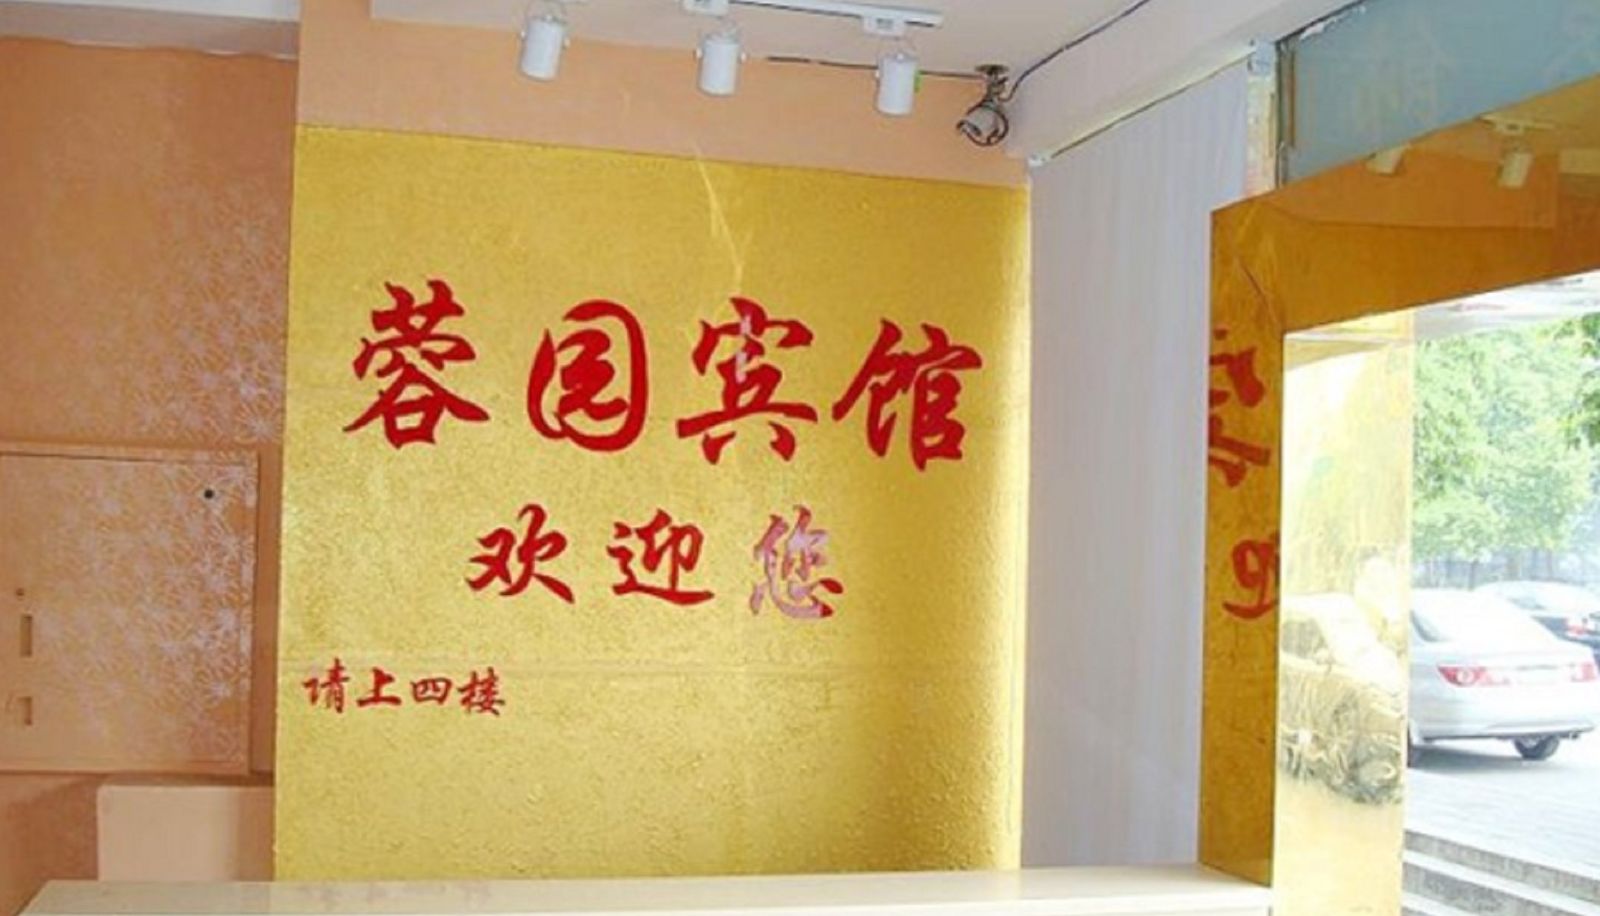 蓉园宾馆
欢迎您
请上四楼